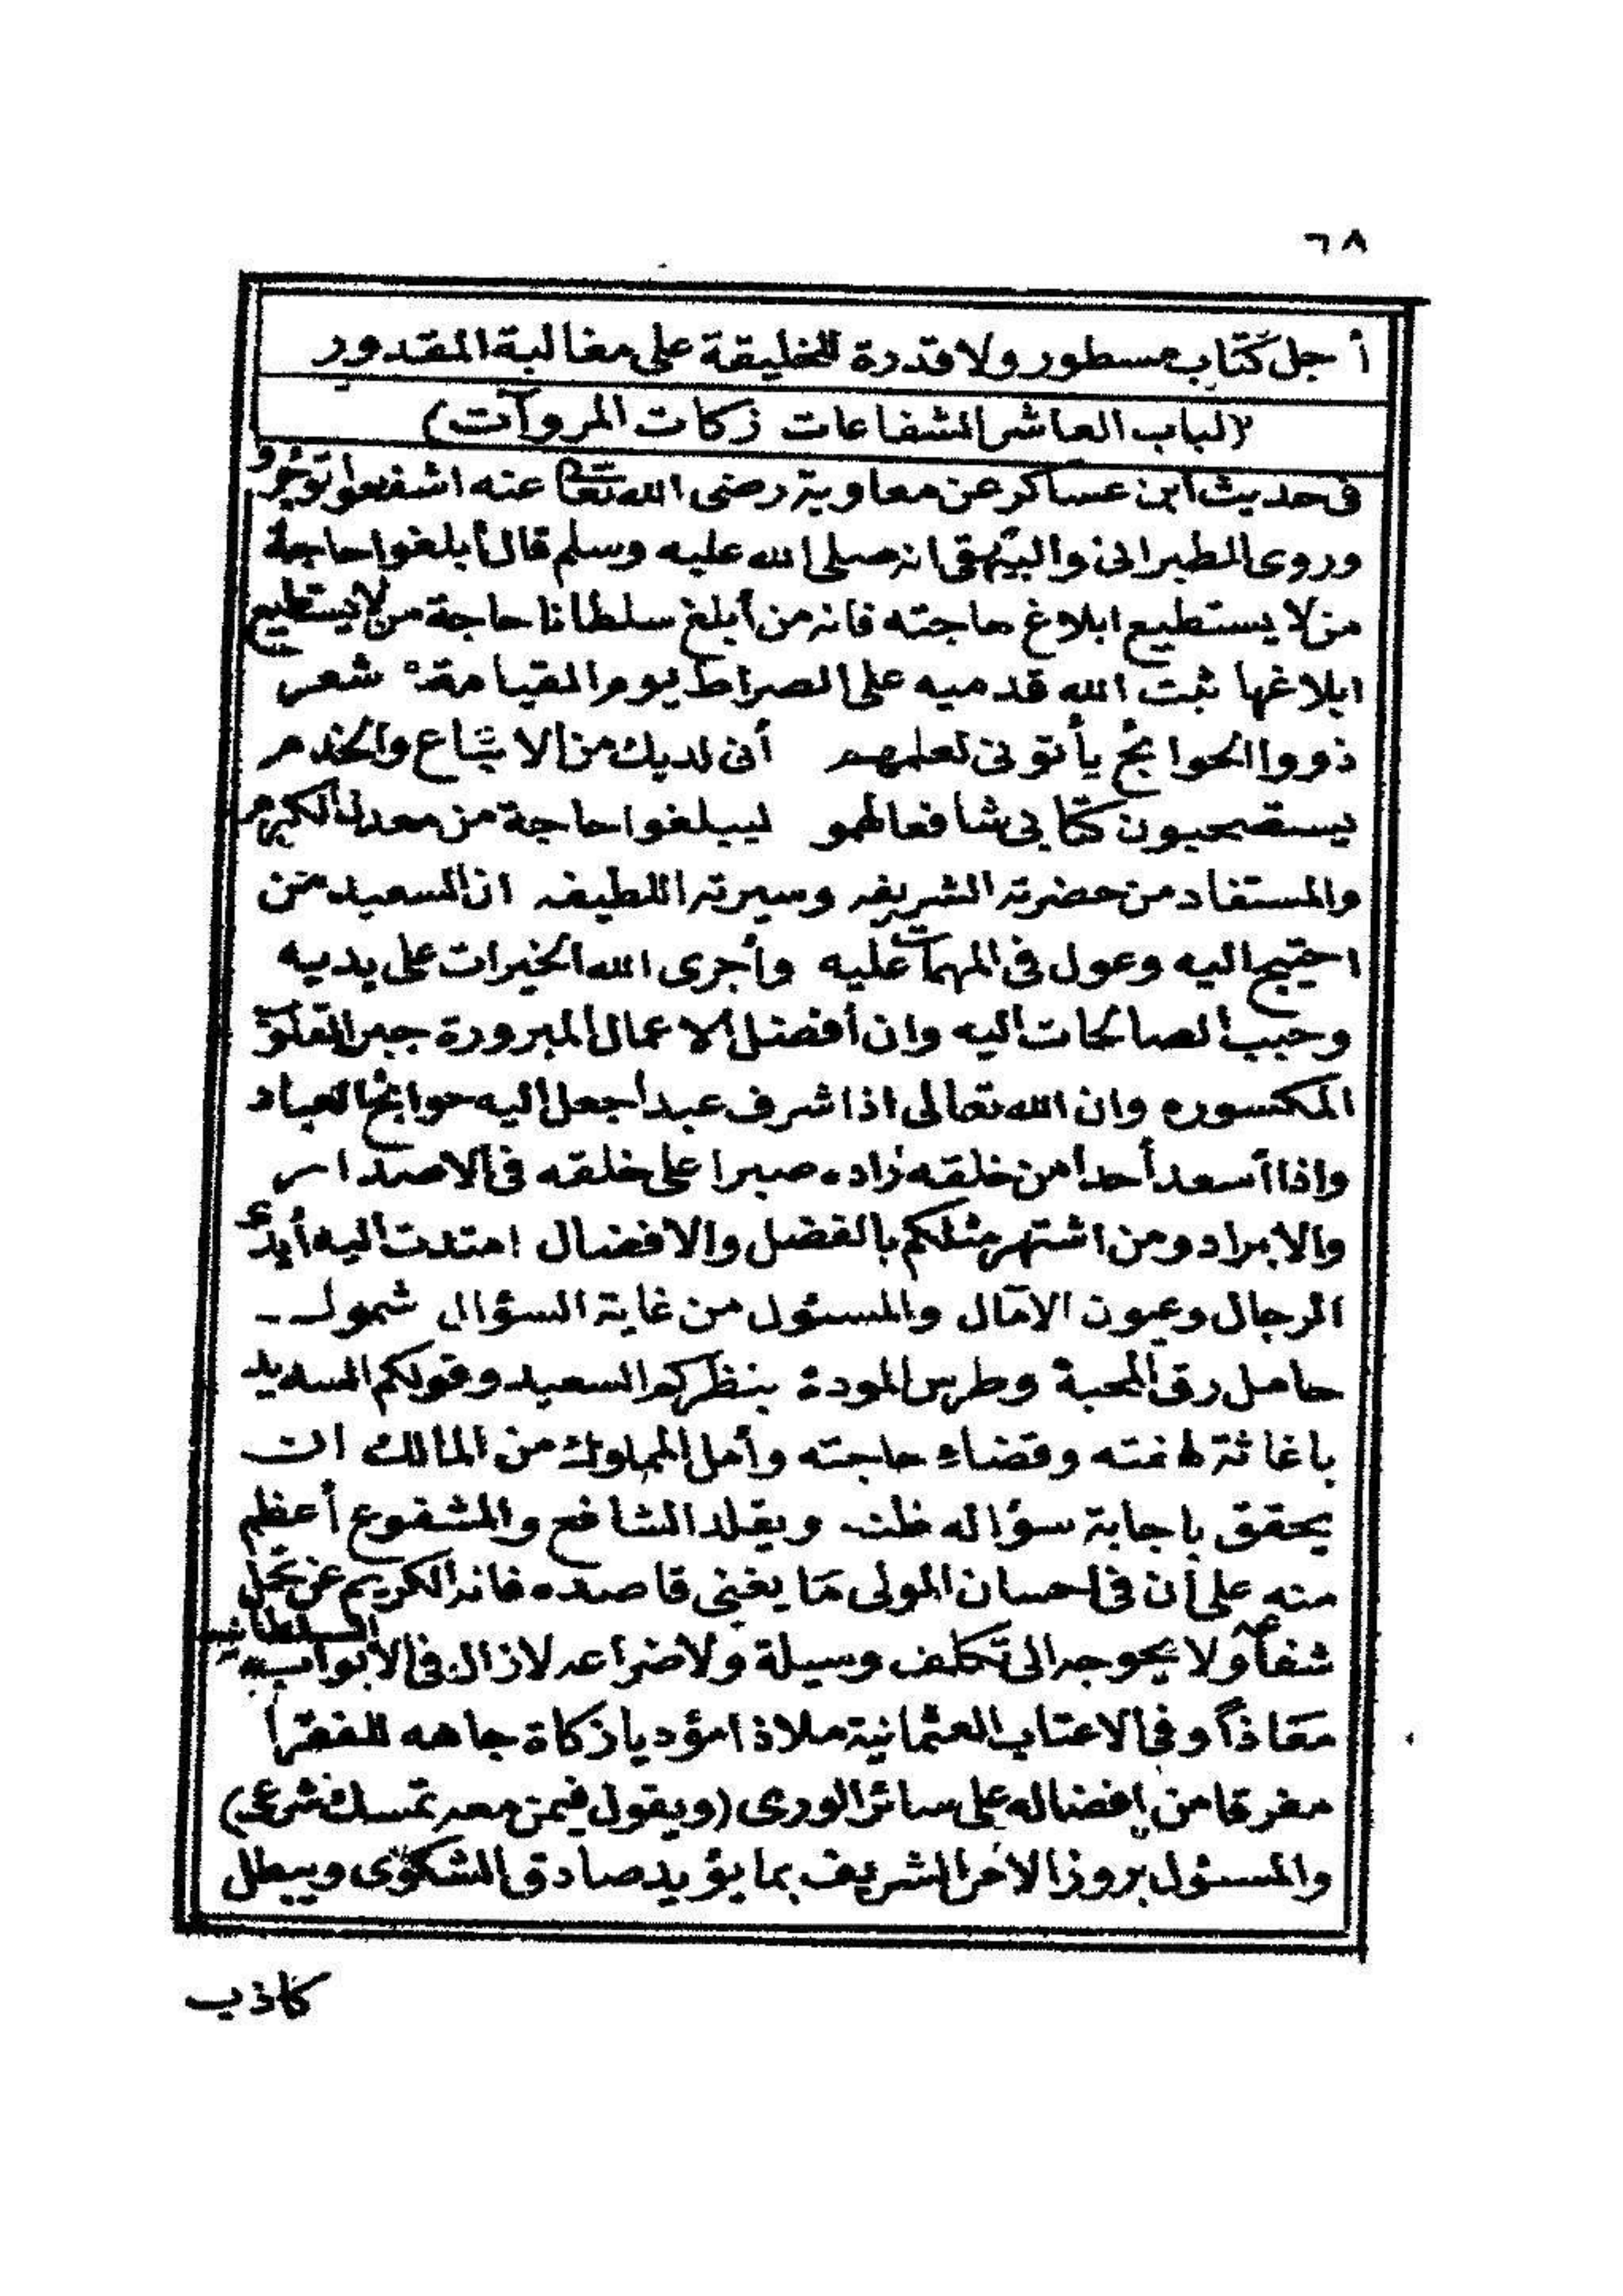 ٦٨
أجل كتاب مسطور ولا قدرة للخليقة على مغالبة المقدور
(الباب العاشر الشفاعات زكات المروآت)
فى حديث ابن عساكر عن معاوية رضى الله تعا عنه اشفعوا توجروا
وروى الطبرانى والبيهقى انه صلى الله عليه وسلم قال أبلغوا حاجة
من لا يستطيع ابلاغ حاجته فانه من أبلغ سلطانا حاجة من لا يستطيع
ابلاغها ثبت الله قدميه على الصراط يوم القيامة شعر
ذووا الحوائج يأتونى لعلمهم أنى لديك من الاتباع والخدم
يستصحبون كتابى شافعا لهمو ليبلغوا حاجة من معدن الكرم
والمستفاد من حضرته الشريفه وسيرته اللطيفه ان السعيد من
احتيج اليه وعول فى المهمات عليه وأجرى الله الخيرات على يديه
وحبب الصالحات اليه وان أفضل الاعمال المبرورة جبر القلوب
المكسوره وان الله تعالى اذا شرف عبدا جعل اليه حوائج العباد
واذا أسعد أحدا من خلقه زاده صبرا على خلقه فى الاصدار
والايراد ومن اشتهر مثلكم بالفضل والافضال امتدت اليه أيدى
الرجال وعيون الآمال والمسئول من غاية السؤال شمول
حامل رق المحبة وطرس المودة بنظركم السعيد وقولكم السديد
باغاثة لهفته وقضاء حاجته وأمل المملوك من المالك ان
يحقق باجابة سؤاله ظنه ويقلد الشافع والمشفوع أعظم
منه على أن فى احسان المولى ما يغنى قاصده فانه الكريم عن تحمل
شفاعه ولا يحوجه الى تكلف وسيلة ولا ضراعه لازال فى الابواب السلطانيه
معاذا وفى الاعتاب العثمانية ملاذا مؤديا زكاة جاهه للفقرا
مفرقا من إفضاله على سائر الورى (ويقول فيمن معه تمسك شرعى)
والمسئول بروز الامر الشريف بما يؤيد صادق الشكوى ويبطل
كاذب